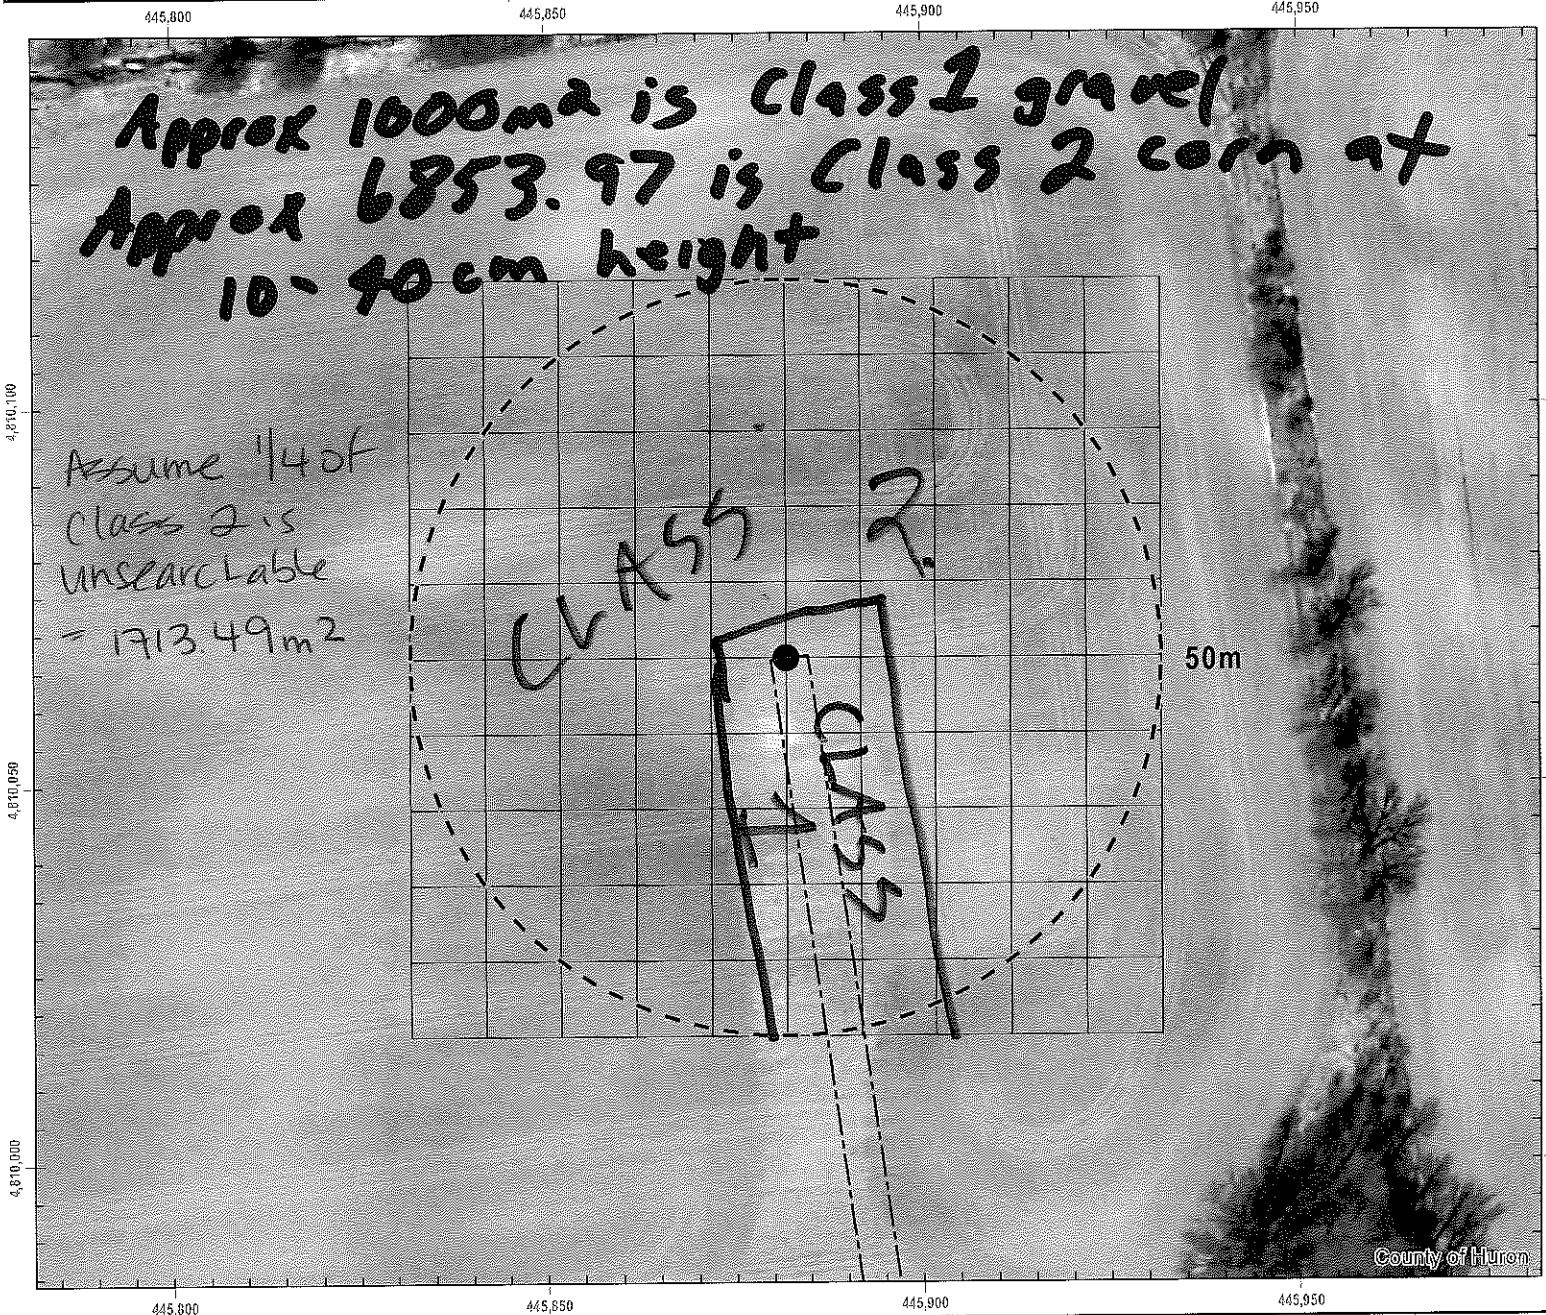 445,800 445,850 445,900 445,950
Approx 1000m2 is Class 1 gravel
Approx 6853.97 is Class 2 corn at
10-40cm height
4,810,100
Assume 1/4 of
class 2 is
unsearchable
= 1713.49m2
CLASS 2
50m
CLASS
1
4,810,050
4,810,000
County of Huron
445,800 445,850 445,900 445,950